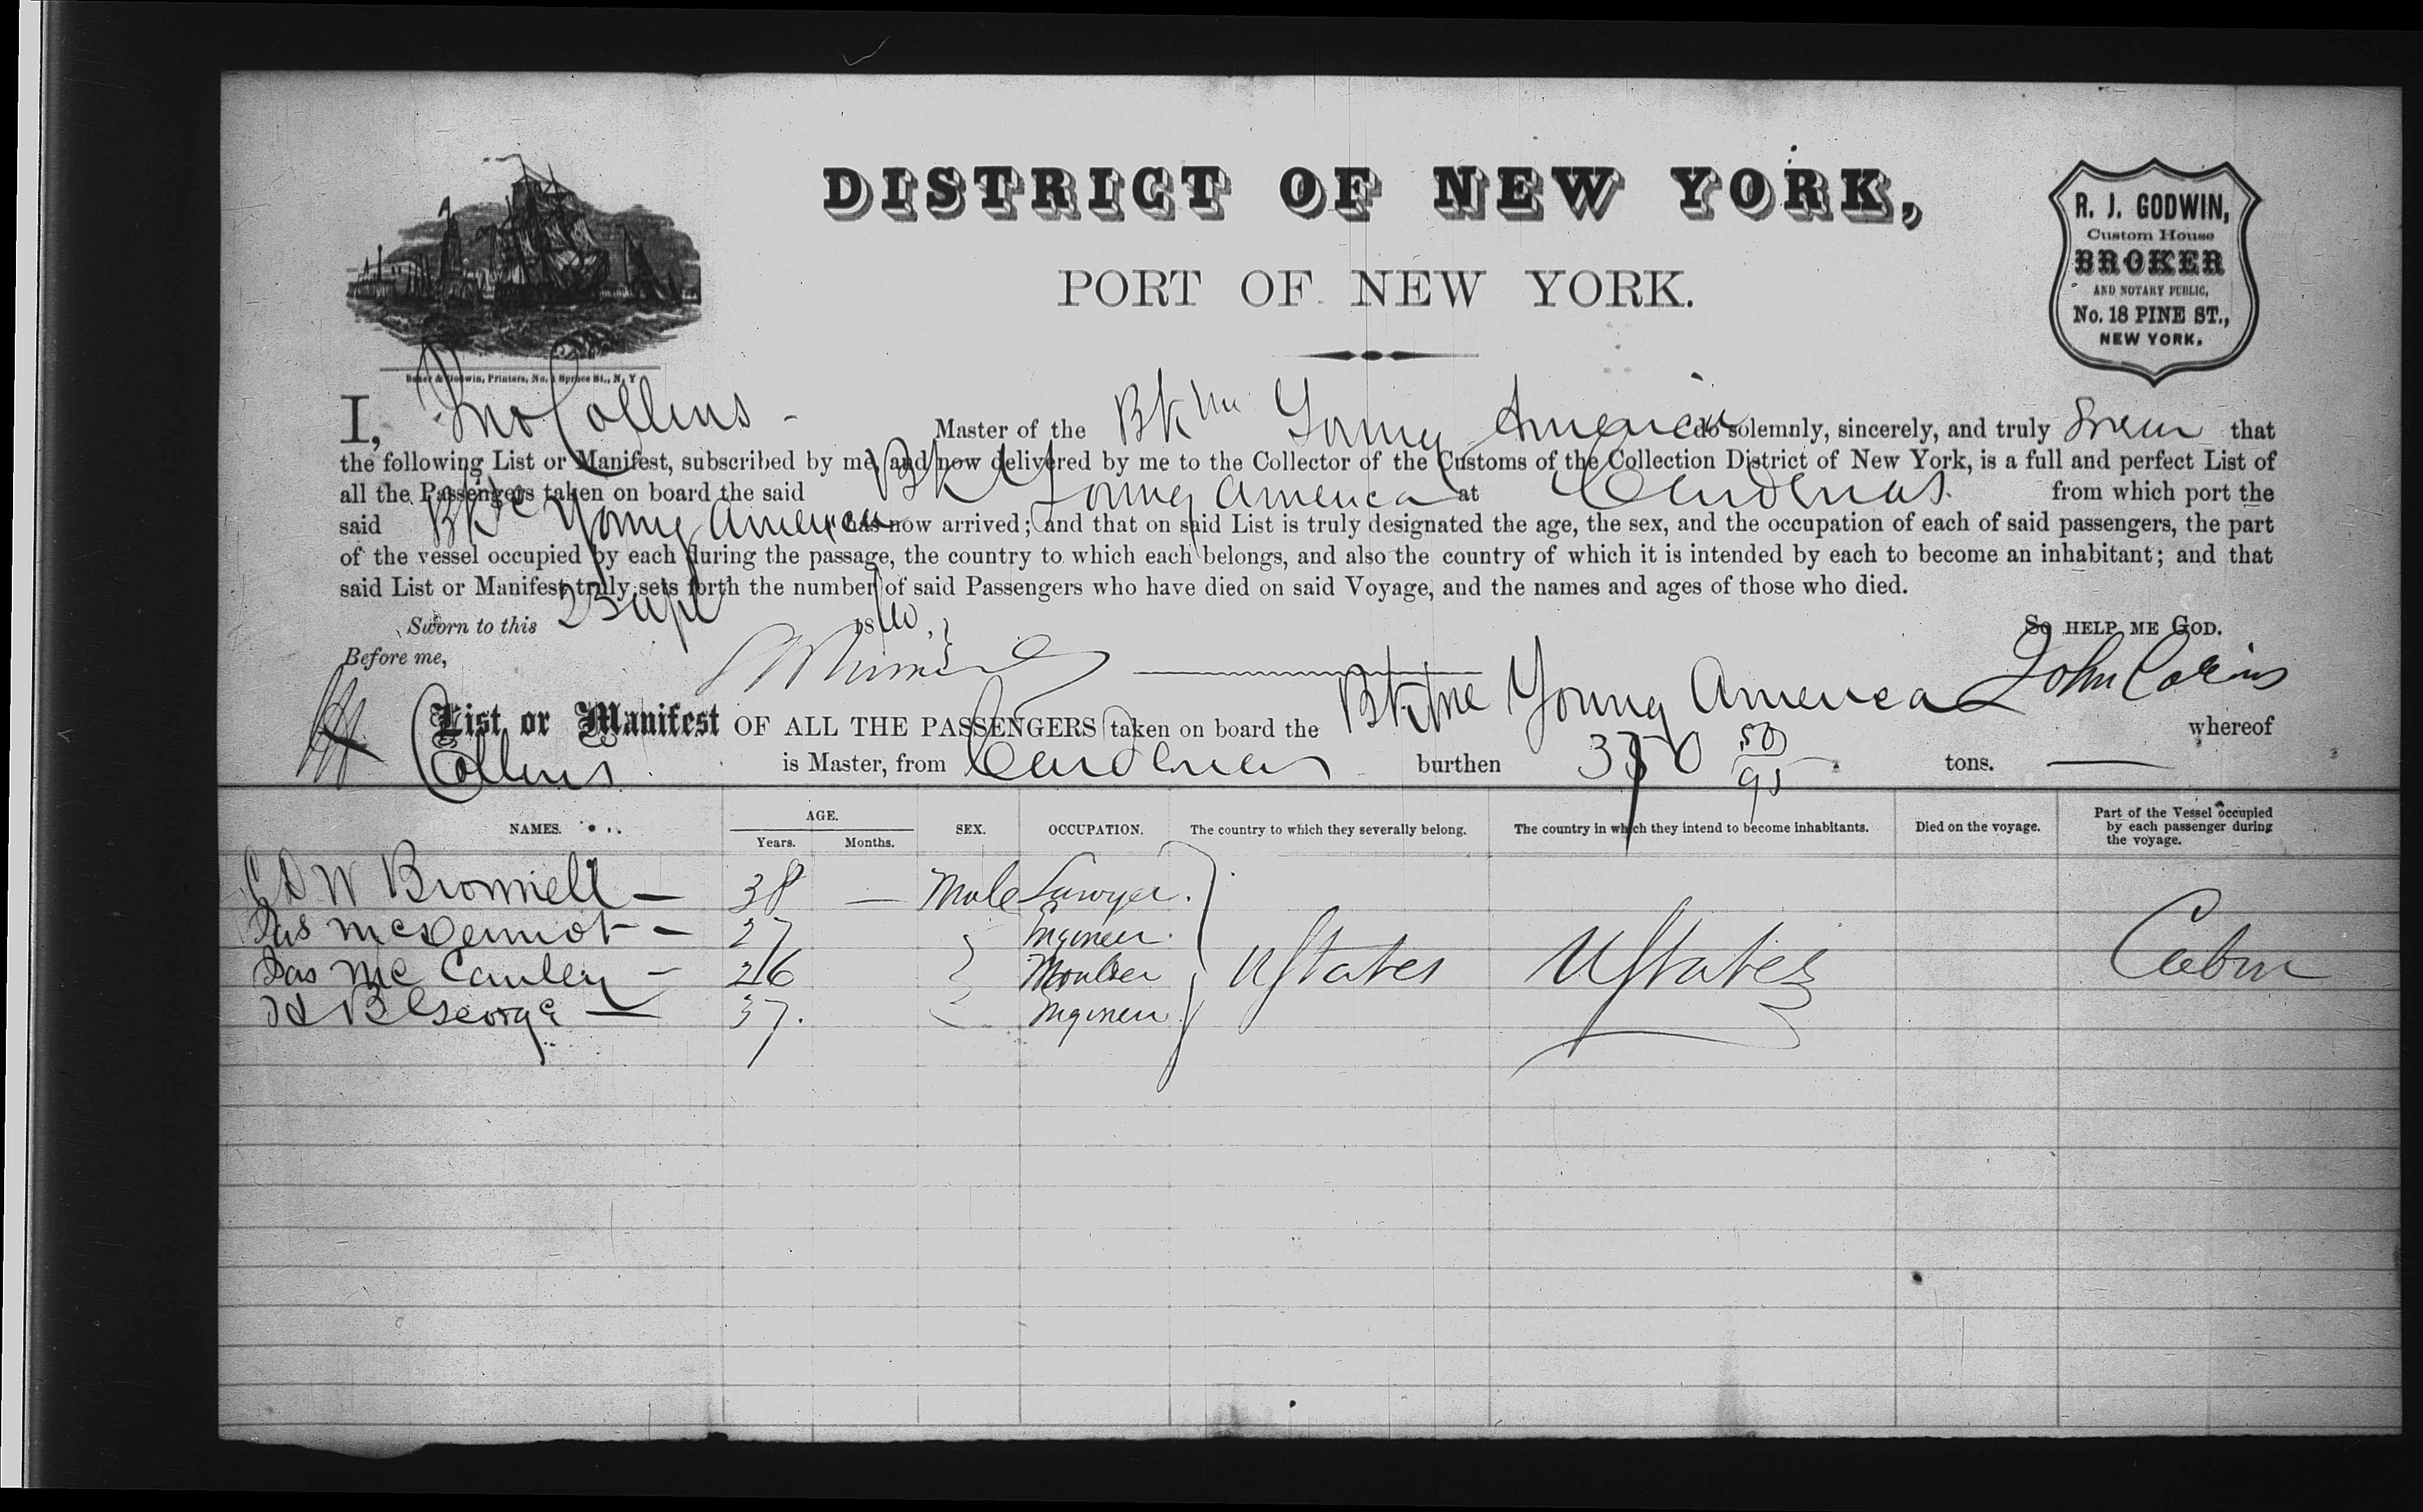 DISTRICT OF NEW YORK,
PORT OF NEW YORK.
R. J. GODWIN,
Custom House
BROKER
AND NOTARY PUBLIC,
No. 18 PINE ST.,
NEW YORK.
Baker & Godwin, Printers, No. 1 Spruce St., N. Y
I, Jno Collins - Master of the Bktne Young America do solemnly, sincerely, and truly Swear that
the following List or Manifest, subscribed by me, and now delivered by me to the Collector of the Customs of the Collection District of New York, is a full and perfect List of
all the Passengers taken on board the said Bk Young America at Cardenas. from which port the
said Bktne Young America has now arrived; and that on said List is truly designated the age, the sex, and the occupation of each of said passengers, the part
of the vessel occupied by each during the passage, the country to which each belongs, and also the country of which it is intended by each to become an inhabitant; and that
said List or Manifest truly sets forth the number of said Passengers who have died on said Voyage, and the names and ages of those who died.
Sworn to this 18 So HELP ME GOD.
Before me, John Collins
List or Manifest OF ALL THE PASSENGERS taken on board the Bktne Young America whereof
Collins is Master, from Cardenas burthen 350 50/95 tons.
NAMES. AGE. Years. Months. SEX. OCCUPATION. The country to which they severally belong. The country in which they intend to become inhabitants. Died on the voyage. Part of the Vessel occupied by each passenger during the voyage.
C D W Brownell — 38 — Male Lawyer.
Jas McDermot - 27 Engineer.
Jas McCauley - 26 Moulder UStates UStates Cabin
H B George — 37. Engineer